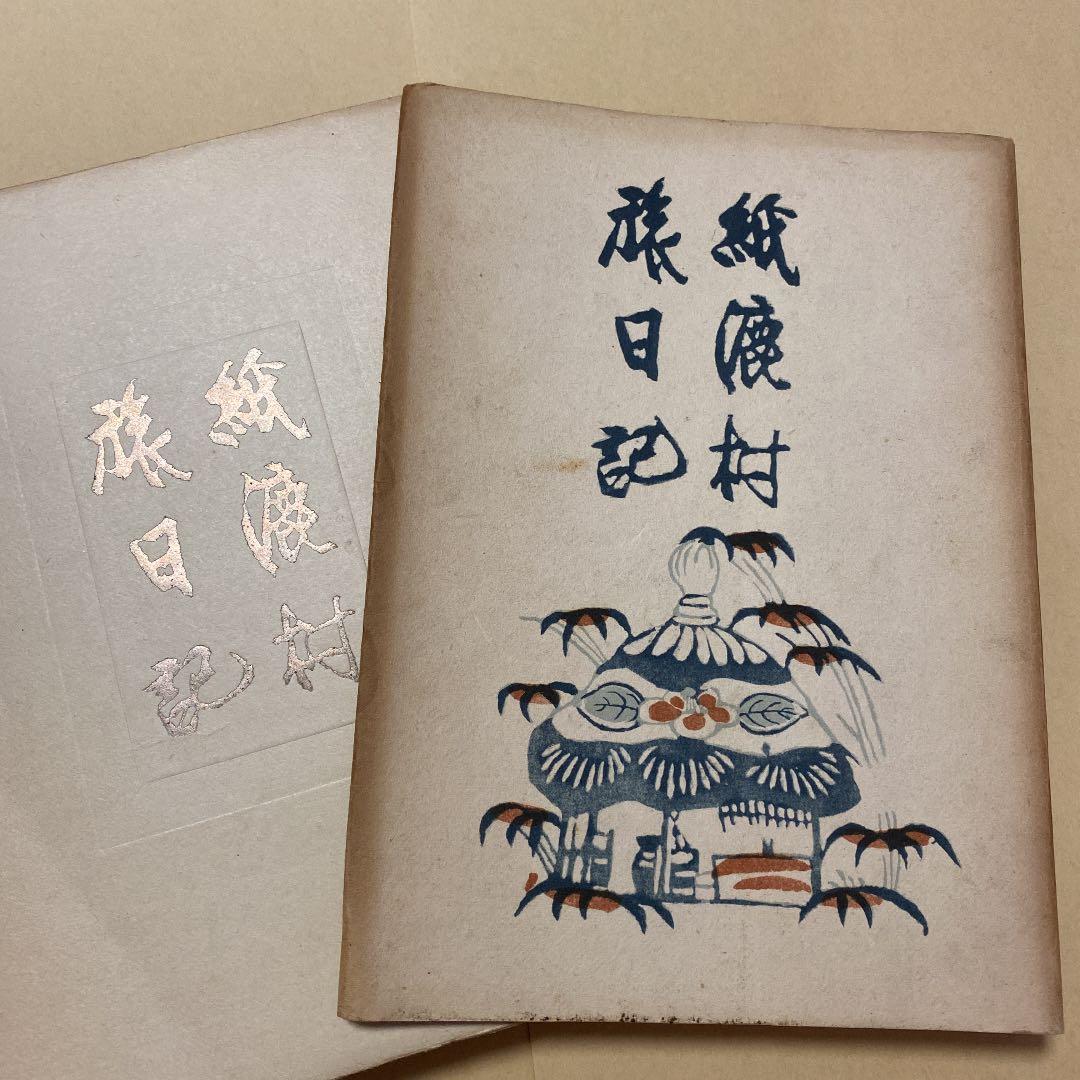 紙漉村
旅日記
紙漉村
旅日記